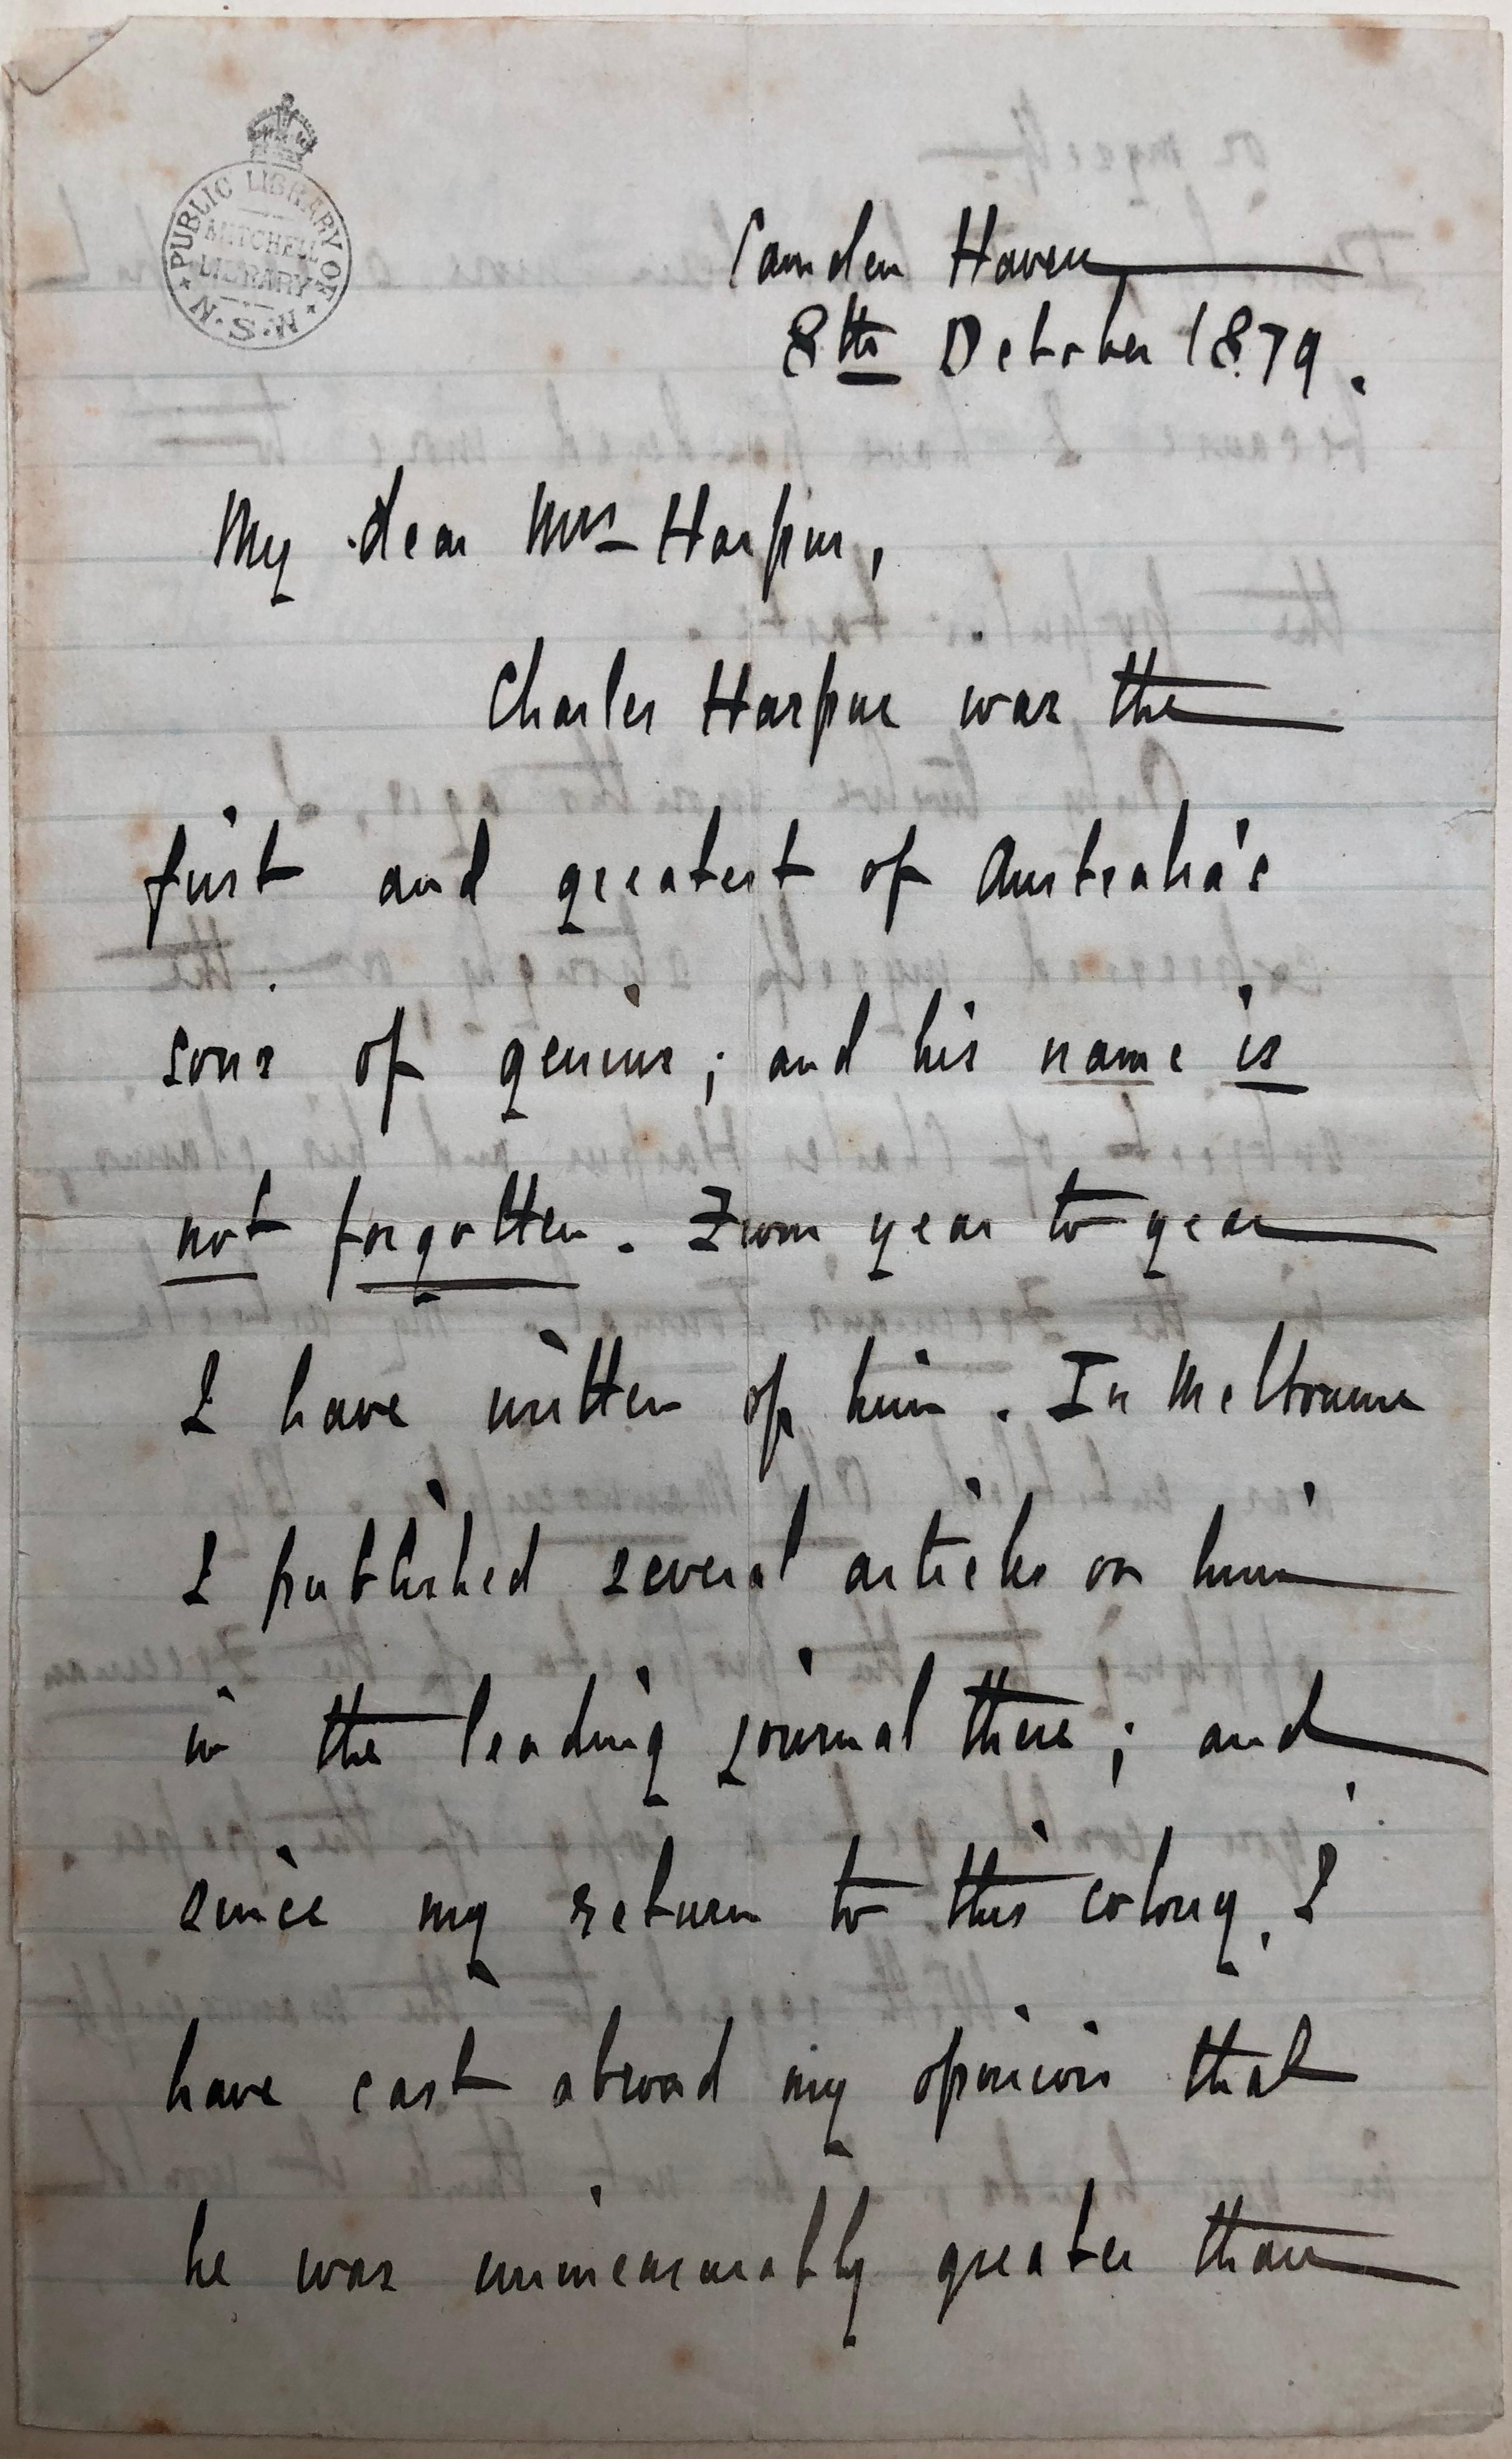 PUBLIC LIBRARY OF N.S.W.
MITCHELL
LIBRARY
Camden Haven
8th October 1879.
My dear Mrs Harpur,
Charles Harpur was the
first and greatest of Australia's
sons of genius; and his name is
not forgotten. From year to year
I have written of him. In Melbourne
I published several articles on him
in the leading journal there; and
since my return to this colony, I
have cast abroad my opinion that
he was immeasurably greater than